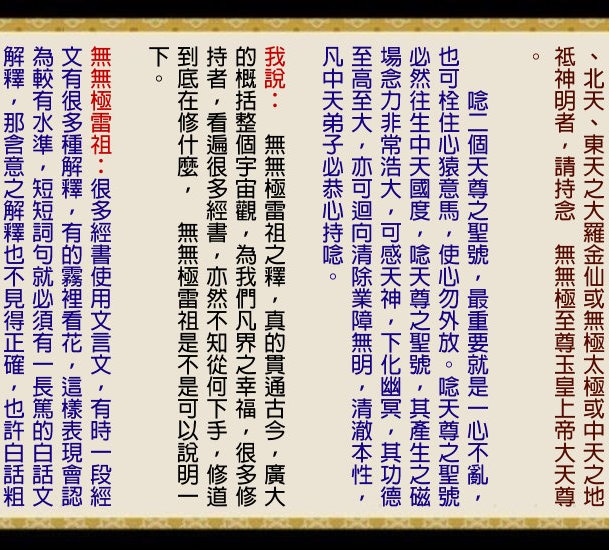 、北天、東天之大羅金仙或無極太極或中天之地
祇神明者，請持念　無無極至尊玉皇上帝大天尊
。
唸二個天尊之聖號，最重要就是一心不亂，
也可栓住心猿意馬，使心勿外放。唸天尊之聖號
必然往生中天國度，唸天尊之聖號，其產生之磁
場念力非常浩大，可感天神，下化幽冥，其功德
至高至大，亦可迴向清除業障無明，清澈本性，
凡中天弟子必恭心持唸。
我說：　無無極雷祖之釋，真的貫通古今，廣大
的概括整個宇宙觀，為我們凡界之幸福，很多修
持者，看遍很多經書，亦然不知從何下手，修道
到底在修什麼，　無無極雷祖是不是可以說明一
下。
無無極雷祖：很多經書使用文言文，有時一段經
文有很多種解釋，有的霧裡看花，這樣表現會認
為較有水準，短短詞句就必須有一長篤的白話文
解釋，那含意之解釋也不見得正確，也許白話粗